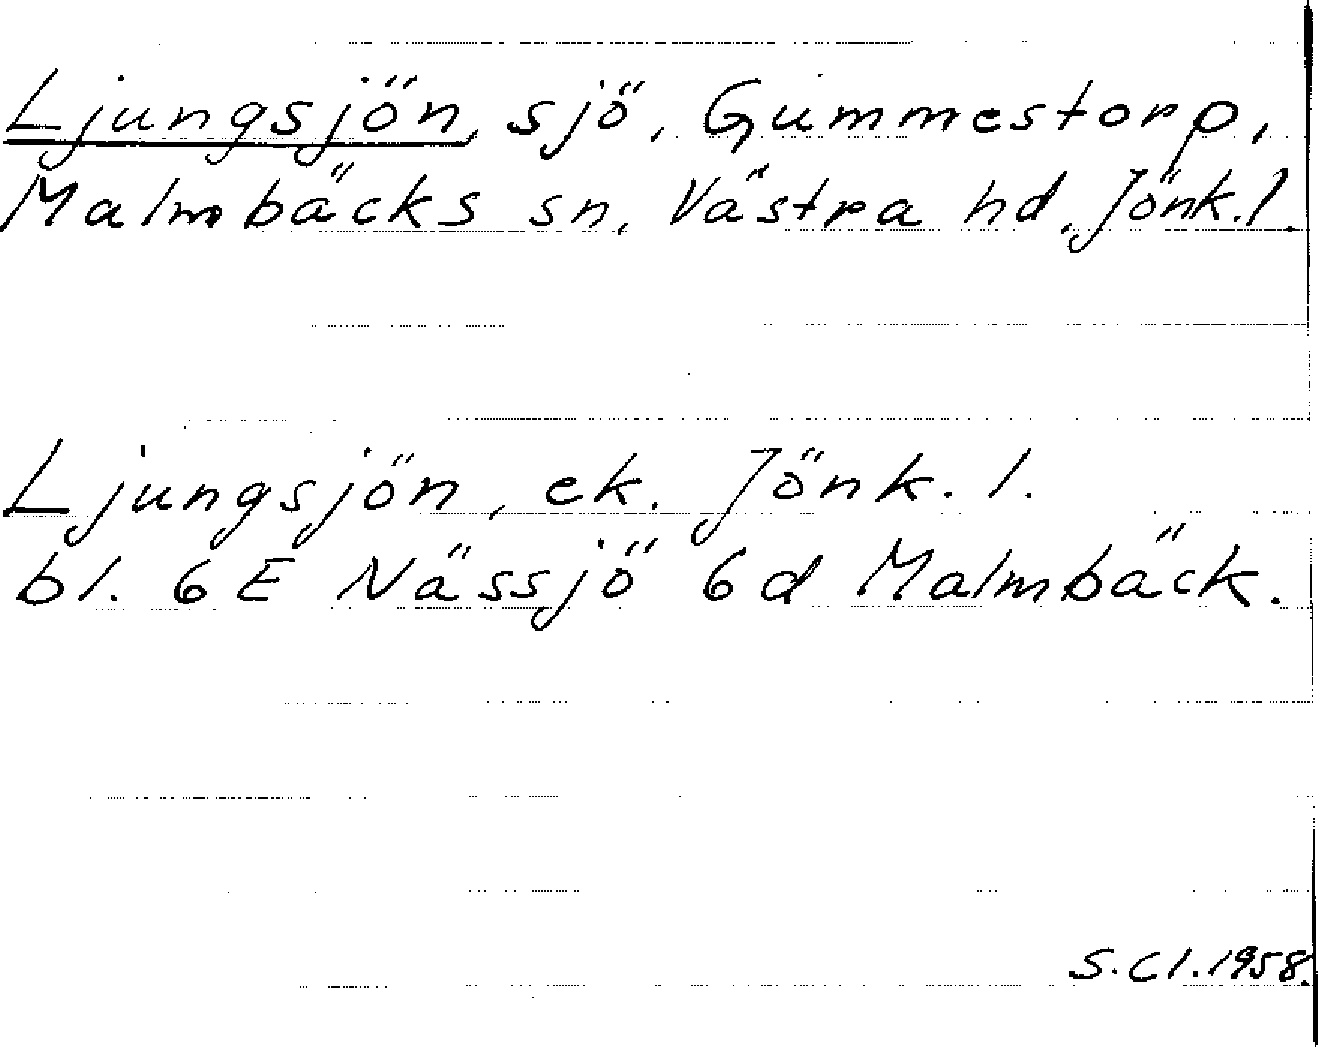 Ljungsjön, sjö, Gummestorp,
Malmbäcks sn, Västra hd, Jönk. l.
Ljungsjön, ek. Jönk. l.
bl. 6 E Nässjö 6 d Malmbäck.
S. Cl. 1958.